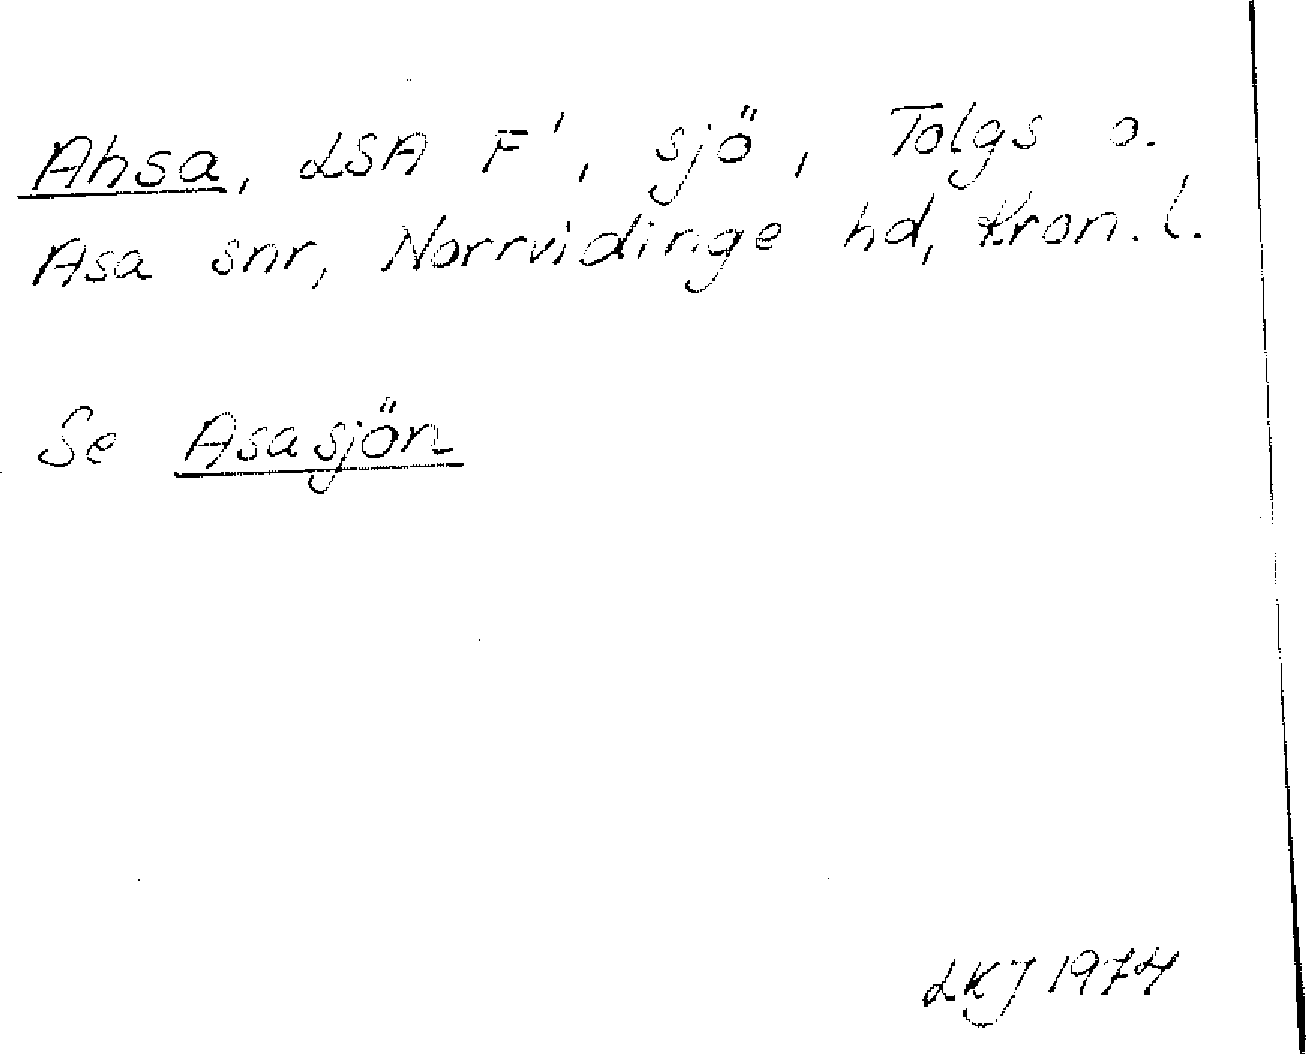 Ahsa, LSA F', sjö, Tolgs o.
Asa snr, Norrvidinge hd, Kron. l.
Se Asasjön
LKJ 1974